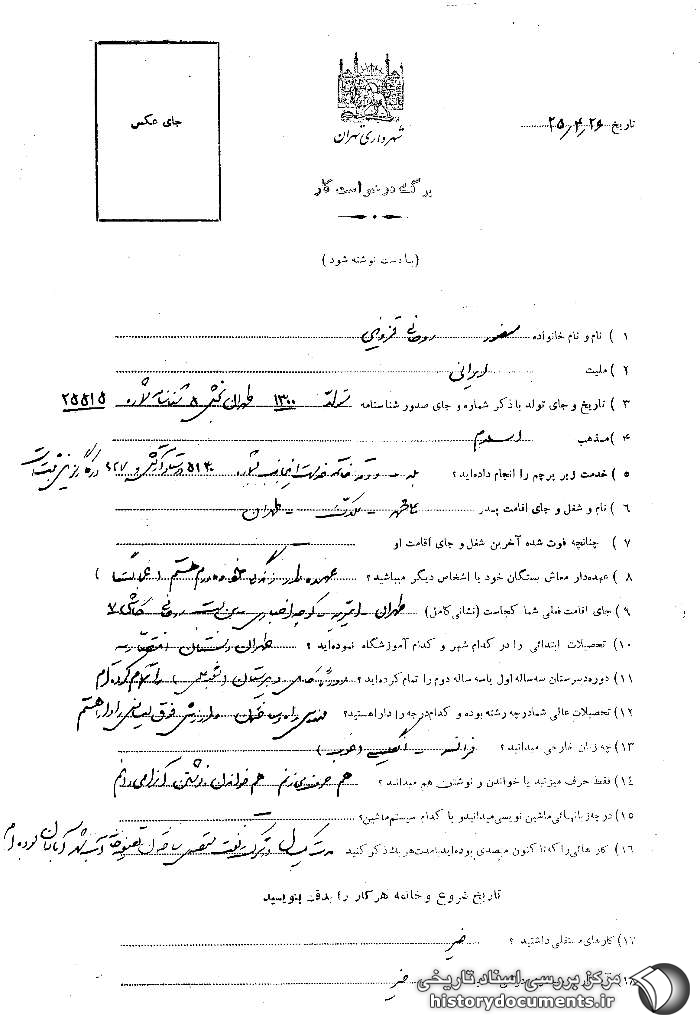 جای عکس
شهرداری تهران
تاریخ ۲۵٫۴٫۲۶
برگ درخواست کار
(با دست نوشته شود)
۱) نام و نام خانواده منصور روحانی قزوینی
۲) ملیت ایرانی
۳) تاریخ و جای تولد با ذکر شماره و جای صدور شناسنامه تولد ۱۳۰۰ طهران بخش ۸ شناسنامه شماره ۲۵۵۱۵
۴) مذهب اسلام
۵) خدمت زیر پرچم را انجام داده‌اید؟ بله
۶) نام و شغل و جای اقامت پدر ملاک ـ طهران
۷) چنانچه فوت شده آخرین شغل و جای اقامت او
۸) عهده‌دار معاش بستگان خود یا اشخاص دیگر میباشید؟ عهده‌دار زندگی خانواده‌ام هستم
۹) جای اقامت فعلی شما کجاست (نشانی کامل) طهران ـ امیریه ـ کوچه انصاری ـ بن بست روحانی کاشی ۷
۱۰) تحصیلات ابتدائی را در کدام شهر و کدام آموزشگاه نموده‌اید؟ طهران دبستان
۱۱) دوره دبیرستان سه ساله اول یا سه ساله دوم را تمام کرده‌اید؟ دبیرستان را تمام کرده‌ام
۱۲) تحصیلات عالی شما در چه رشته بوده و کدام درجه را دارا هستید؟ مهندس راه و ساختمان و ارزش فوق لیسانس را دارا هستم
۱۳) چه زبان خارجی میدانید؟ فرانسه ـ انگلیسی (خوب)
۱۴) فقط حرف میزنید یا خواندن و نوشتن هم میدانید؟ هم حرف میزنم هم خواندن و نوشتن
۱۵) در چه زبانهائی ماشین نویسی میدانید و با کدام سیستم ماشین؟ ـ
۱۶) کارهائی را که تا کنون متصدی بوده‌اید با مدت هر یک ذکر کنید مدت یک سال در شرکت نفت آبادان کرده‌ام
تاریخ شروع و خاتمه هر کار را بدقت بنویسید
۱۷) کارهای مستقلی داشتید؟ خیر
۱۸) خیر
مرکز بررسی اسناد تاریخی
historydocuments.ir